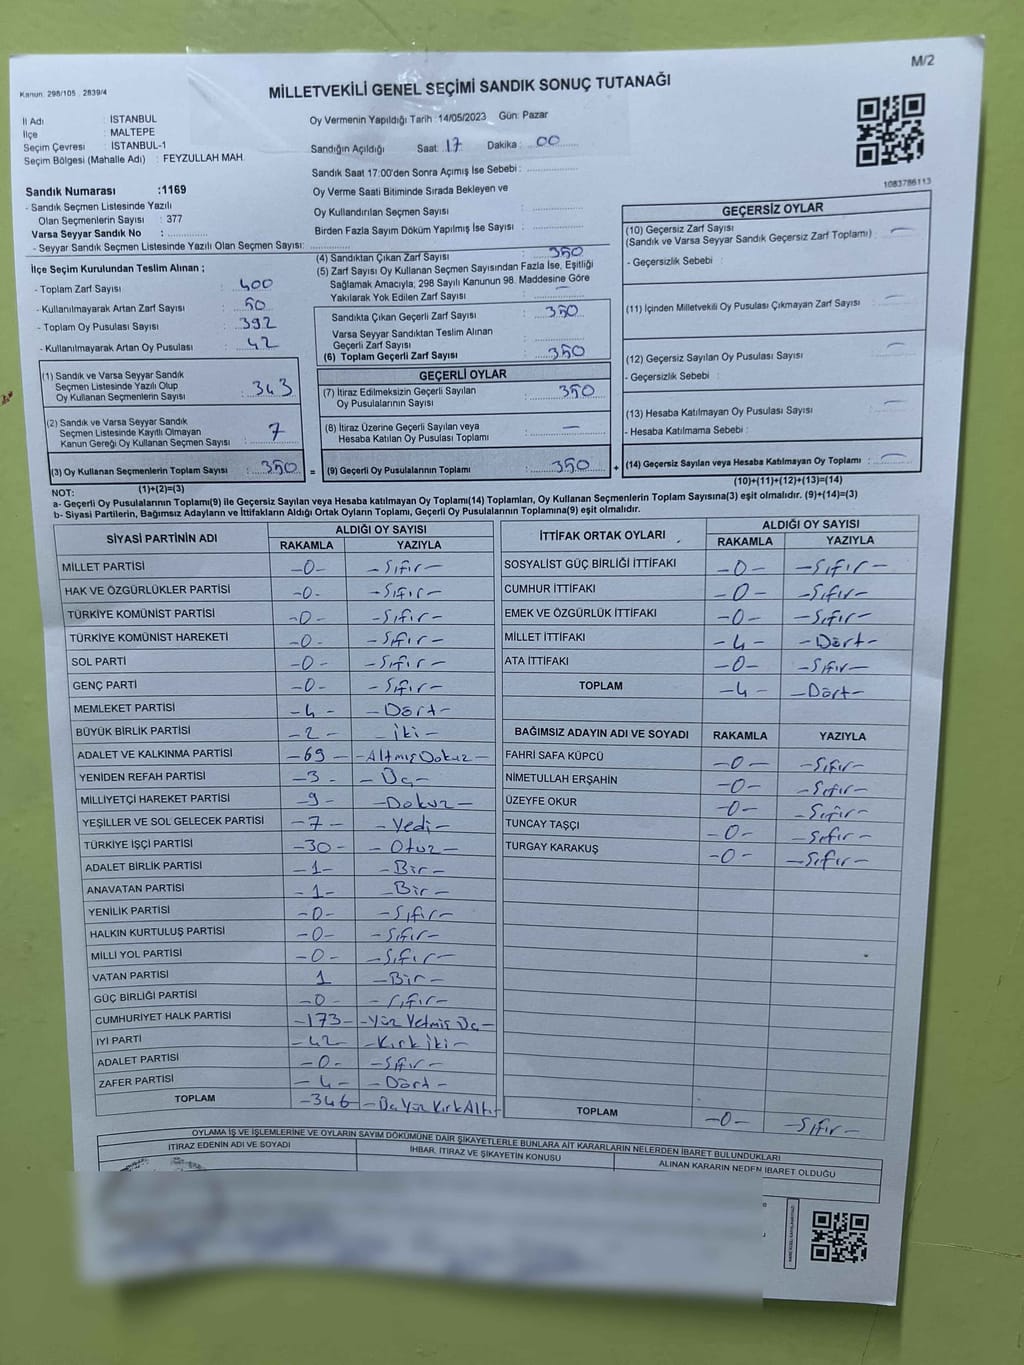 M/2
Kanun: 298/105 , 2839/4
MİLLETVEKİLİ GENEL SEÇİMİ SANDIK SONUÇ TUTANAĞI
İl Adı : İSTANBUL
İlçe : MALTEPE
Seçim Çevresi : İSTANBUL-1
Seçim Bölgesi (Mahalle Adı) : FEYZULLAH MAH.
Oy Vermenin Yapıldığı Tarih :14/05/2023 Gün: Pazar
Sandığın Açıldığı Saat: 17 Dakika: 00
Sandık Saat 17:00'den Sonra Açımış İse Sebebi :
Oy Verme Saati Bitiminde Sırada Bekleyen ve
Oy Kullandırılan Seçmen Sayısı :
Birden Fazla Sayım Döküm Yapılmış İse Sayısı :
1083786113
Sandık Numarası :1169
- Sandık Seçmen Listesinde Yazılı
Olan Seçmenlerin Sayısı : 377
Varsa Seyyar Sandık No :
- Seyyar Sandık Seçmen Listesinde Yazılı Olan Seçmen Sayısı:
İlçe Seçim Kurulundan Teslim Alınan ;
- Toplam Zarf Sayısı : 400
- Kullanılmayarak Artan Zarf Sayısı : 50
- Toplam Oy Pusulası Sayısı : 392
- Kullanılmayarak Artan Oy Pusulası : 42
(1) Sandık ve Varsa Seyyar Sandık
Seçmen Listesinde Yazılı Olup
Oy Kullanan Seçmenlerin Sayısı : 343
(2) Sandık ve Varsa Seyyar Sandık
Seçmen Listesinde Kayıtlı Olmayan
Kanun Gereği Oy Kullanan Seçmen Sayısı : 7
(3) Oy Kullanan Seçmenlerin Toplam Sayısı : 350
(1)+(2)=(3)
(4) Sandıktan Çıkan Zarf Sayısı : 350
(5) Zarf Sayısı Oy Kullanan Seçmen Sayısından Fazla İse, Eşitliği
Sağlamak Amacıyla; 298 Sayılı Kanunun 98. Maddesine Göre
Yakılarak Yok Edilen Zarf Sayısı : —
Sandıkta Çıkan Geçerli Zarf Sayısı : 350
Varsa Seyyar Sandıktan Teslim Alınan
Geçerli Zarf Sayısı :
(6) Toplam Geçerli Zarf Sayısı : 350
GEÇERLİ OYLAR
(7) İtiraz Edilmeksizin Geçerli Sayılan
Oy Pusulalarının Sayısı : 350
(8) İtiraz Üzerine Geçerli Sayılan veya
Hesaba Katılan Oy Pusulası Toplamı : —
= (9) Geçerli Oy Pusulalarının Toplamı : 350
GEÇERSİZ OYLAR
(10) Geçersiz Zarf Sayısı
(Sandık ve Varsa Seyyar Sandık Geçersiz Zarf Toplamı) : —
- Geçersizlik Sebebi :
(11) İçinden Milletvekili Oy Pusulası Çıkmayan Zarf Sayısı : —
(12) Geçersiz Sayılan Oy Pusulası Sayısı : —
- Geçersizlik Sebebi :
(13) Hesaba Katılmayan Oy Pusulası Sayısı : —
- Hesaba Katılmama Sebebi :
+ (14) Geçersiz Sayılan veya Hesaba Katılmayan Oy Toplamı : —
(10)+(11)+(12)+(13)=(14)
NOT:
a- Geçerli Oy Pusulalarının Toplamı(9) ile Geçersiz Sayılan veya Hesaba katılmayan Oy Toplamı(14) Toplamları, Oy Kullanan Seçmenlerin Toplam Sayısına(3) eşit olmalıdır. (9)+(14)=(3)
b- Siyasi Partilerin, Bağımsız Adayların ve İttifakların Aldığı Ortak Oyların Toplamı, Geçerli Oy Pusulalarının Toplamına(9) eşit olmalıdır.
SİYASİ PARTİNİN ADI ALDIĞI OY SAYISI
RAKAMLA YAZIYLA
MİLLET PARTİSİ -0- -Sıfır-
HAK VE ÖZGÜRLÜKLER PARTİSİ -0- -Sıfır-
TÜRKİYE KOMÜNİST PARTİSİ -0- -Sıfır-
TÜRKİYE KOMÜNİST HAREKETİ -0- -Sıfır-
SOL PARTİ -0- -Sıfır-
GENÇ PARTİ -0- -Sıfır-
MEMLEKET PARTİSİ -4- -Dört-
BÜYÜK BİRLİK PARTİSİ -2- -İki-
ADALET VE KALKINMA PARTİSİ -69- -Altmış Dokuz-
YENİDEN REFAH PARTİSİ -3- -Üç-
MİLLİYETÇİ HAREKET PARTİSİ -9- -Dokuz-
YEŞİLLER VE SOL GELECEK PARTİSİ -7- -Yedi-
TÜRKİYE İŞÇİ PARTİSİ -30- -Otuz-
ADALET BİRLİK PARTİSİ -1- -Bir-
ANAVATAN PARTİSİ -1- -Bir-
YENİLİK PARTİSİ -0- -Sıfır-
HALKIN KURTULUŞ PARTİSİ -0- -Sıfır-
MİLLİ YOL PARTİSİ -0- -Sıfır-
VATAN PARTİSİ 1 -Bir-
GÜÇ BİRLİĞİ PARTİSİ -0- -Sıfır-
CUMHURİYET HALK PARTİSİ -173- -Yüz Yetmiş Üç-
İYİ PARTİ -42- -Kırk İki-
ADALET PARTİSİ -0- -Sıfır-
ZAFER PARTİSİ -4- -Dört-
TOPLAM -346- -Üç Yüz Kırk Altı-
İTTİFAK ORTAK OYLARI ALDIĞI OY SAYISI
RAKAMLA YAZIYLA
SOSYALİST GÜÇ BİRLİĞİ İTTİFAKI -0- -Sıfır-
CUMHUR İTTİFAKI -0- -Sıfır-
EMEK VE ÖZGÜRLÜK İTTİFAKI -0- -Sıfır-
MİLLET İTTİFAKI -4- -Dört-
ATA İTTİFAKI -0- -Sıfır-
TOPLAM -4- -Dört-
BAĞIMSIZ ADAYIN ADI VE SOYADI RAKAMLA YAZIYLA
FAHRİ SAFA KÜPCÜ -0- -Sıfır-
NİMETULLAH ERŞAHİN -0- -Sıfır-
ÜZEYFE OKUR -0- -Sıfır-
TUNCAY TAŞÇI -0- -Sıfır-
TURGAY KARAKUŞ -0- -Sıfır-
TOPLAM -0- -Sıfır-
OYLAMA İŞ VE İŞLEMLERİNE VE OYLARIN SAYIM DÖKÜMÜNE DAİR ŞİKAYETLERLE BUNLARA AİT KARARLARIN NELERDEN İBARET BULUNDUKLARI
İTİRAZ EDENİN ADI VE SOYADI İHBAR, İTİRAZ VE ŞİKAYETİN KONUSU ALINAN KARARIN NEDEN İBARET OLDUĞU